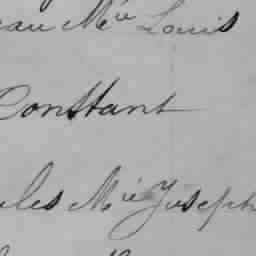 eau Mie Louis
Constant
les Mie Joseph